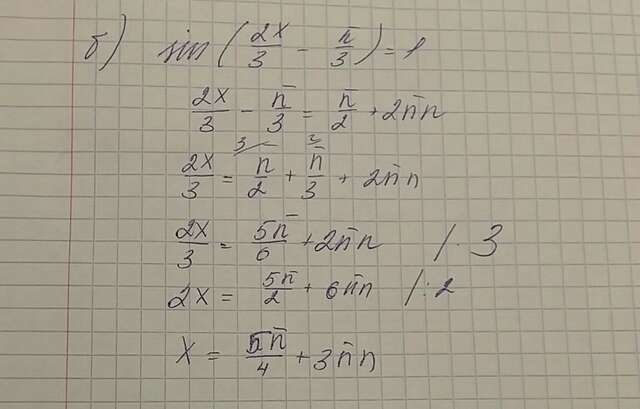 б) sin(2x/3 − π/3) = 1
2x/3 − π/3 = π/2 + 2πn
2x/3 = ³π/2 + ²π/3 + 2πn
2x/3 = 5π/6 + 2πn /·3
2x = 5π/2 + 6πn /:2
x = 5π/4 + 3πn